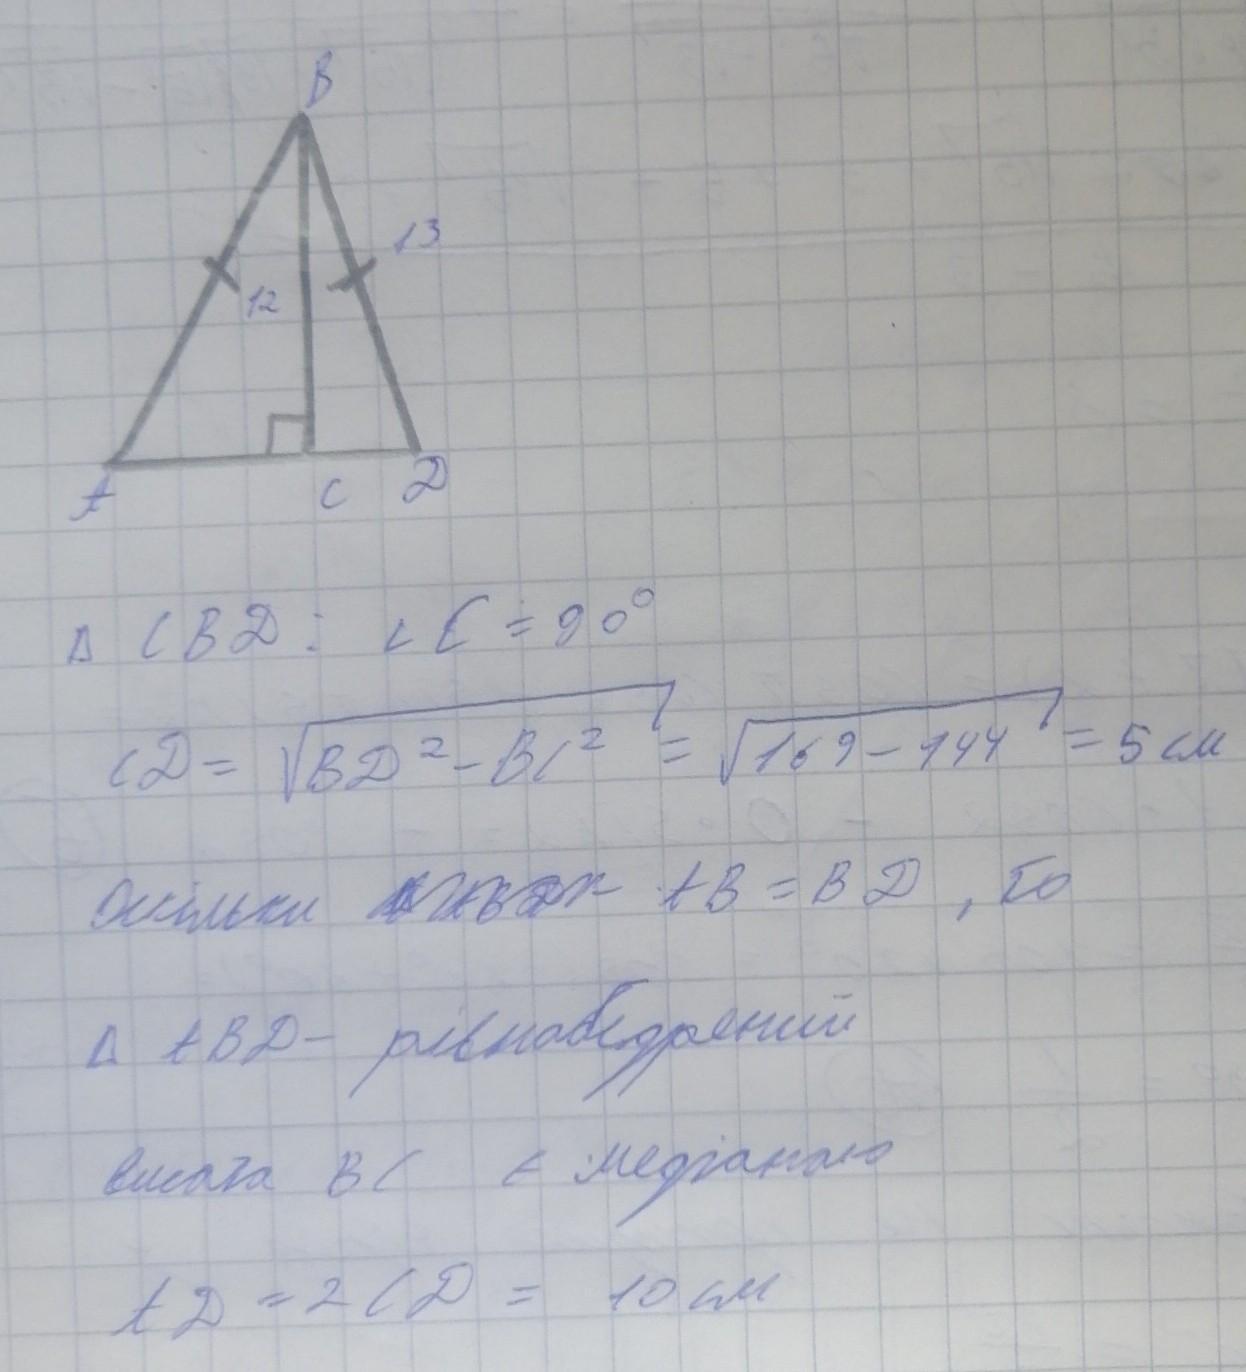 B
13
12
A
C D
Δ CBD: ∠C = 90°
CD = √BD² - BC² = √169 - 144 = 5 см
Оскільки AB = BD, то
Δ ABD - рівнобедрений
висота BC є медіаною
AD = 2CD = 10 см